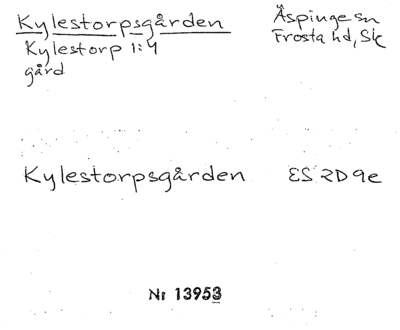 Kylestorpsgården
Äspinge sn
Kylestorp 1:4
Frosta hd, Sk
gård
Kylestorpsgården ES 2D 9e
Nr 13953